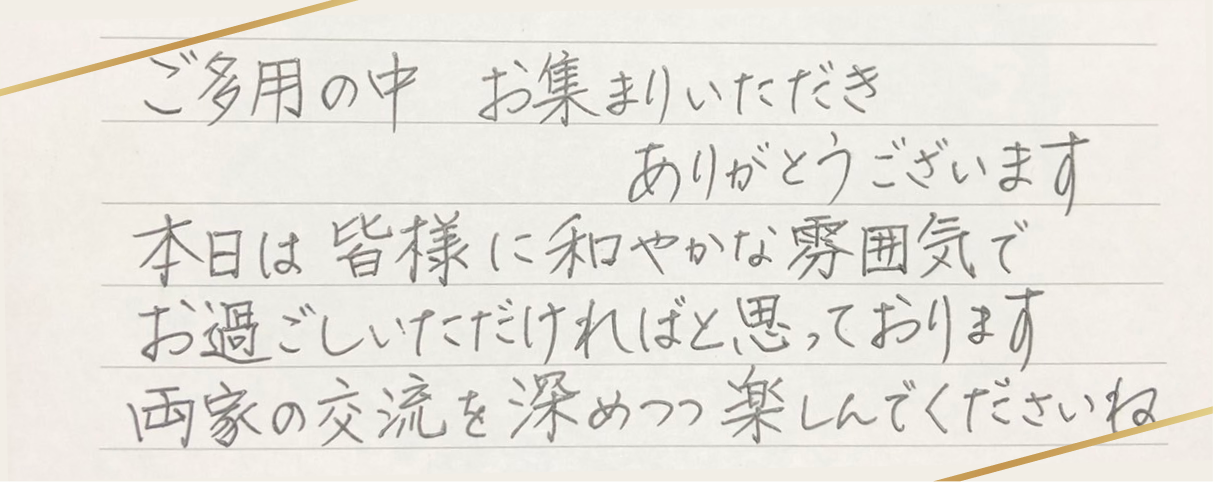 ご多用の中 お集まりいただき
ありがとうございます
本日は 皆様に 和やかな雰囲気で
お過ごしいただければと思っております
両家の交流を深めつつ楽しんでくださいね